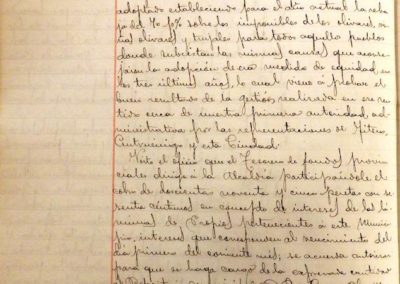 adoptado estableciendo para el año actual la reba
ja del 40 p% sobre los imponibles de los olivares, vi
ñas olivares y timpales para todos aquellos pueblos
donde subsistan las mismas causas que acon
sejaron la adopción de esa medida de equidad, en
los tres últimos años, lo cual viene á probar el
buen resultado de la gestión realizada en ese sen
tido cerca de nuestra primera autoridad, ad
ministrativa por las representaciones de Fitero,
Cintruenigo y esta Ciudad.
Visto el oficio que el Tesorero de fondos provin
ciales dirije á la Alcaldía participándole el
cobro de doscientas noventa y cinco pesetas con se
senta céntimos en concepto de intereses de las lá
minas de Propios pertenecientes á este Munici
pio, intereses que corresponden al vencimiento del
día primero del corriente mes; se acuerda autorizar
para que se haga cargo de la expresada cantidad